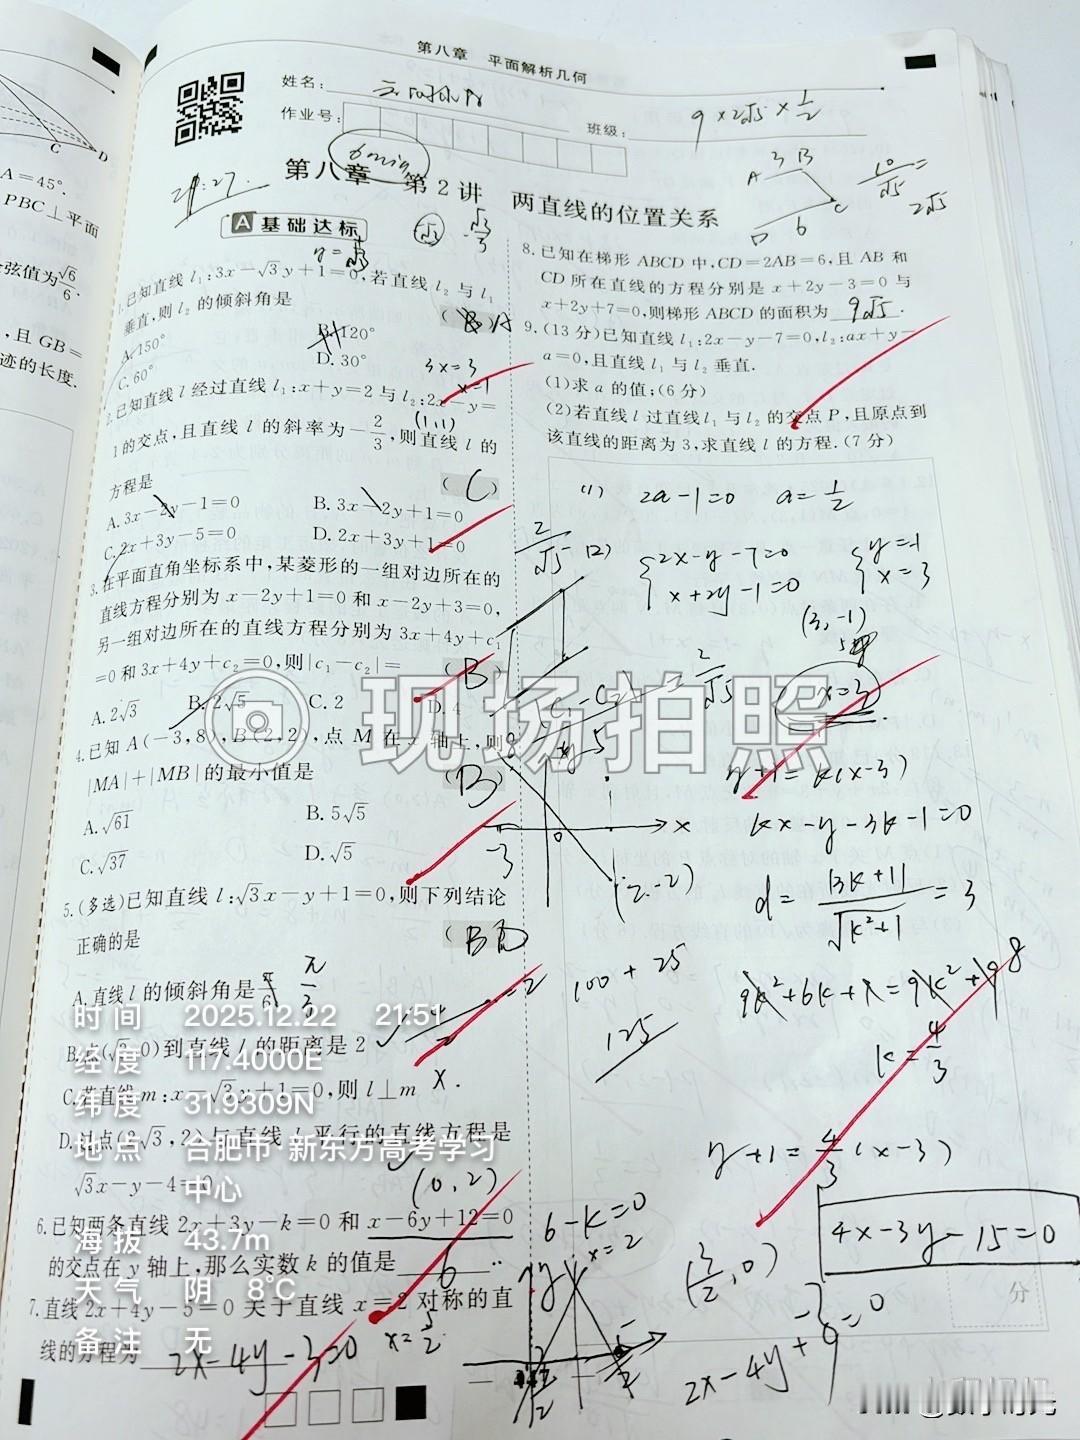 第八章 平面解析几何
姓名:
作业号:
班级:
9×2√5×1/2
6min
21:27
第八章 第2讲 两直线的位置关系
A 基础达标
1.已知直线 l₁:3x-√3y+1=0,若直线 l₂ 与 l₁
垂直,则 l₂ 的倾斜角是 ( A )
A.150° B.120°
C.60° D.30°
3x=3
x=1
2.已知直线 l 经过直线 l₁:x+y=2 与 l₂:2x-y=
(1,1)
1 的交点,且直线 l 的斜率为-2/3,则直线 l 的
方程是 ( C )
A.3x-2y-1=0 B.3x-2y+1=0
C.2x+3y-5=0 D.2x+3y+1=0
3.在平面直角坐标系中,某菱形的一组对边所在的
直线方程分别为 x-2y+1=0 和 x-2y+3=0,
另一组对边所在的直线方程分别为 3x+4y+c₁
=0 和 3x+4y+c₂=0,则|c₁-c₂|= ( B )
A.2√3 B.2√5 C.2 D.4
4.已知 A(-3,8),B(2,2),点 M 在 x 轴上,则
|MA|+|MB|的最小值是 ( B )
A.√61 B.5√5
C.√37 D.√5
5.(多选)已知直线 l:√3x-y+1=0,则下列结论
正确的是 ( BD )
A.直线 l 的倾斜角是 π/6 π/3
B.点(√3,0)到直线 l 的距离是 2
C.若直线 m:x-√3y+1=0,则 l⊥m
D.过点(2√3,2)与直线 l 平行的直线方程是
√3x-y-4=0
(0,2)
6.已知两条直线 2x+3y-k=0 和 x-6y+12=0
的交点在 y 轴上,那么实数 k 的值是 6.
7.直线 2x+4y-5=0 关于直线 x=2 对称的直
线的方程为 2x-4y-3=0
x=5/2
3 B
A
C
D 6
10/√5=
2√5
8.已知在梯形 ABCD 中,CD=2AB=6,且 AB 和
CD 所在直线的方程分别是 x+2y-3=0 与
x+2y+7=0,则梯形 ABCD 的面积为 9√5.
9.(13 分)已知直线 l₁:2x-y-7=0,l₂:ax+y-
a=0,且直线 l₁ 与 l₂ 垂直.
(1)求 a 的值;(6 分)
(2)若直线 l 过直线 l₁ 与 l₂ 的交点 P,且原点到
该直线的距离为 3,求直线 l 的方程.(7 分)
(1) 2a-1=0 a=1/2
2/√5
(2) {2x-y-7=0 {y=-1
x+2y-1=0 x=3
(3,-1)
x=3
y+1=k(x-3)
kx-y-3k-1=0
d=|3k+1|/√(k²+1)=3
9k²+6k+1=9k²+9 8
k=4/3
y+1=4/3(x-3)
4x-3y-15=0
x
0
-3
(2,-2)
100+25
125
6-k=0
x=2
(3/2,0)
2x-4y+9=0
分
现场拍照
时间 2025.12.22 21:51
经度 117.4000E
纬度 31.9309N
地点 合肥市·新东方高考学习
中心
海拔 43.7m
天气 阴 8℃
备注 无
A=45°.
PBC⊥平面
余弦值为√6/6.
,且 GB=
迹的长度.
C
D